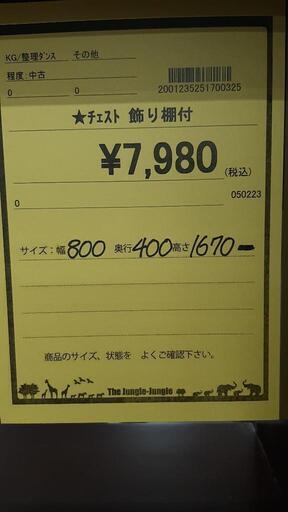 KG/整理ダンス その他
程度:中古
0 0 2001235251700325
★チェスト 飾り棚付
¥7,980(税込)
0 050223
サイズ:幅800 奥行400高さ1670
商品のサイズ、状態を よくご確認下さい。
The Jungle-Jungle